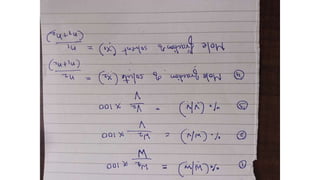 ① % (w/w) = W₂/W × 100
② % (w/v) = W₂/V × 100
③ % (v/v) = V₂/V × 100
④ Mole fraction of solute (x₂) = n₂/(n₁+n₂)
Mole fraction of solvent (x₁) = n₁/(n₁+n₂)